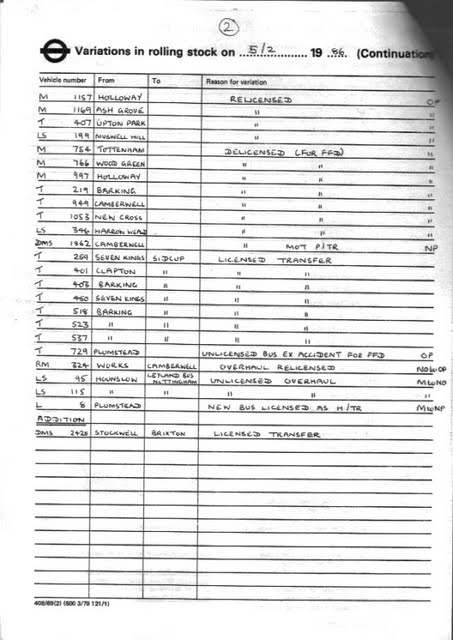 2
Variations in rolling stock on 5/2 19 86 (Continuation
Vehicle number From To Reason for variation
M 1157 HOLLOWAY RELICENSED OP
M 1169 ASH GROVE " "
T 407 UPTON PARK " "
LS 199 MUSWELL HILL " "
M 754 TOTTENHAM DELICENSED (FOR FFD) "
M 766 WOOD GREEN " " "
M 997 HOLLOWAY " " "
T 219 BARKING " " "
T 949 CAMBERWELL " " "
T 1053 NEW CROSS " " "
LS 346 HARROW WEALD " " "
DMS 1962 CAMBERWELL " MOT P/TR NP
T 259 SEVEN KINGS SIDCUP LICENSED TRANSFER
T 401 CLAPTON " " "
T 403 BARKING " " "
T 450 SEVEN KINGS " " "
T 518 BARKING " " "
T 523 " " " "
T 537 " " " "
T 729 PLUMSTEAD UNLICENSED BUS EX ACCIDENT FOR FFD OP
RM 324 WORKS CAMBERWELL OVERHAUL RELICENSED
LS 95 HOUNSLOW LEYLAND BUS NOTTINGHAM UNLICENSED OVERHAUL
LS 115 " " " " "
L 8 PLUMSTEAD NEW BUS LICENSED AS H/TR
ADDITION
DMS 2428 STOCKWELL BRIXTON LICENSED TRANSFER
408/69(2) (600 3/79 121/1)